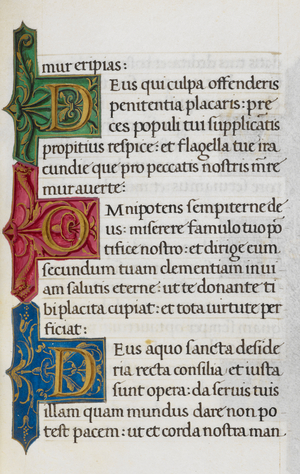 mur eripias:
DEus qui culpa offenderis
penitentia placaris: pre
ces populi tui supplicātis
propitius respice: et flagella tue ira
cundie que pro peccatis nostris mēre
mur averte:
OMnipotens sempiterne de
us: miserere famulo tuo pō
tifice nostro: et dirige eum
secundum tuam clementiam in vi
am salutis eterne: ut te donante ti
bi placita cupiat: et tota virtute per
ficiat:
DEus a quo sancta deside
ria recta consilia et iusta
sunt opera: da servis tuis
illam quam mundus dare non po
test pacem: ut et corda nostra man